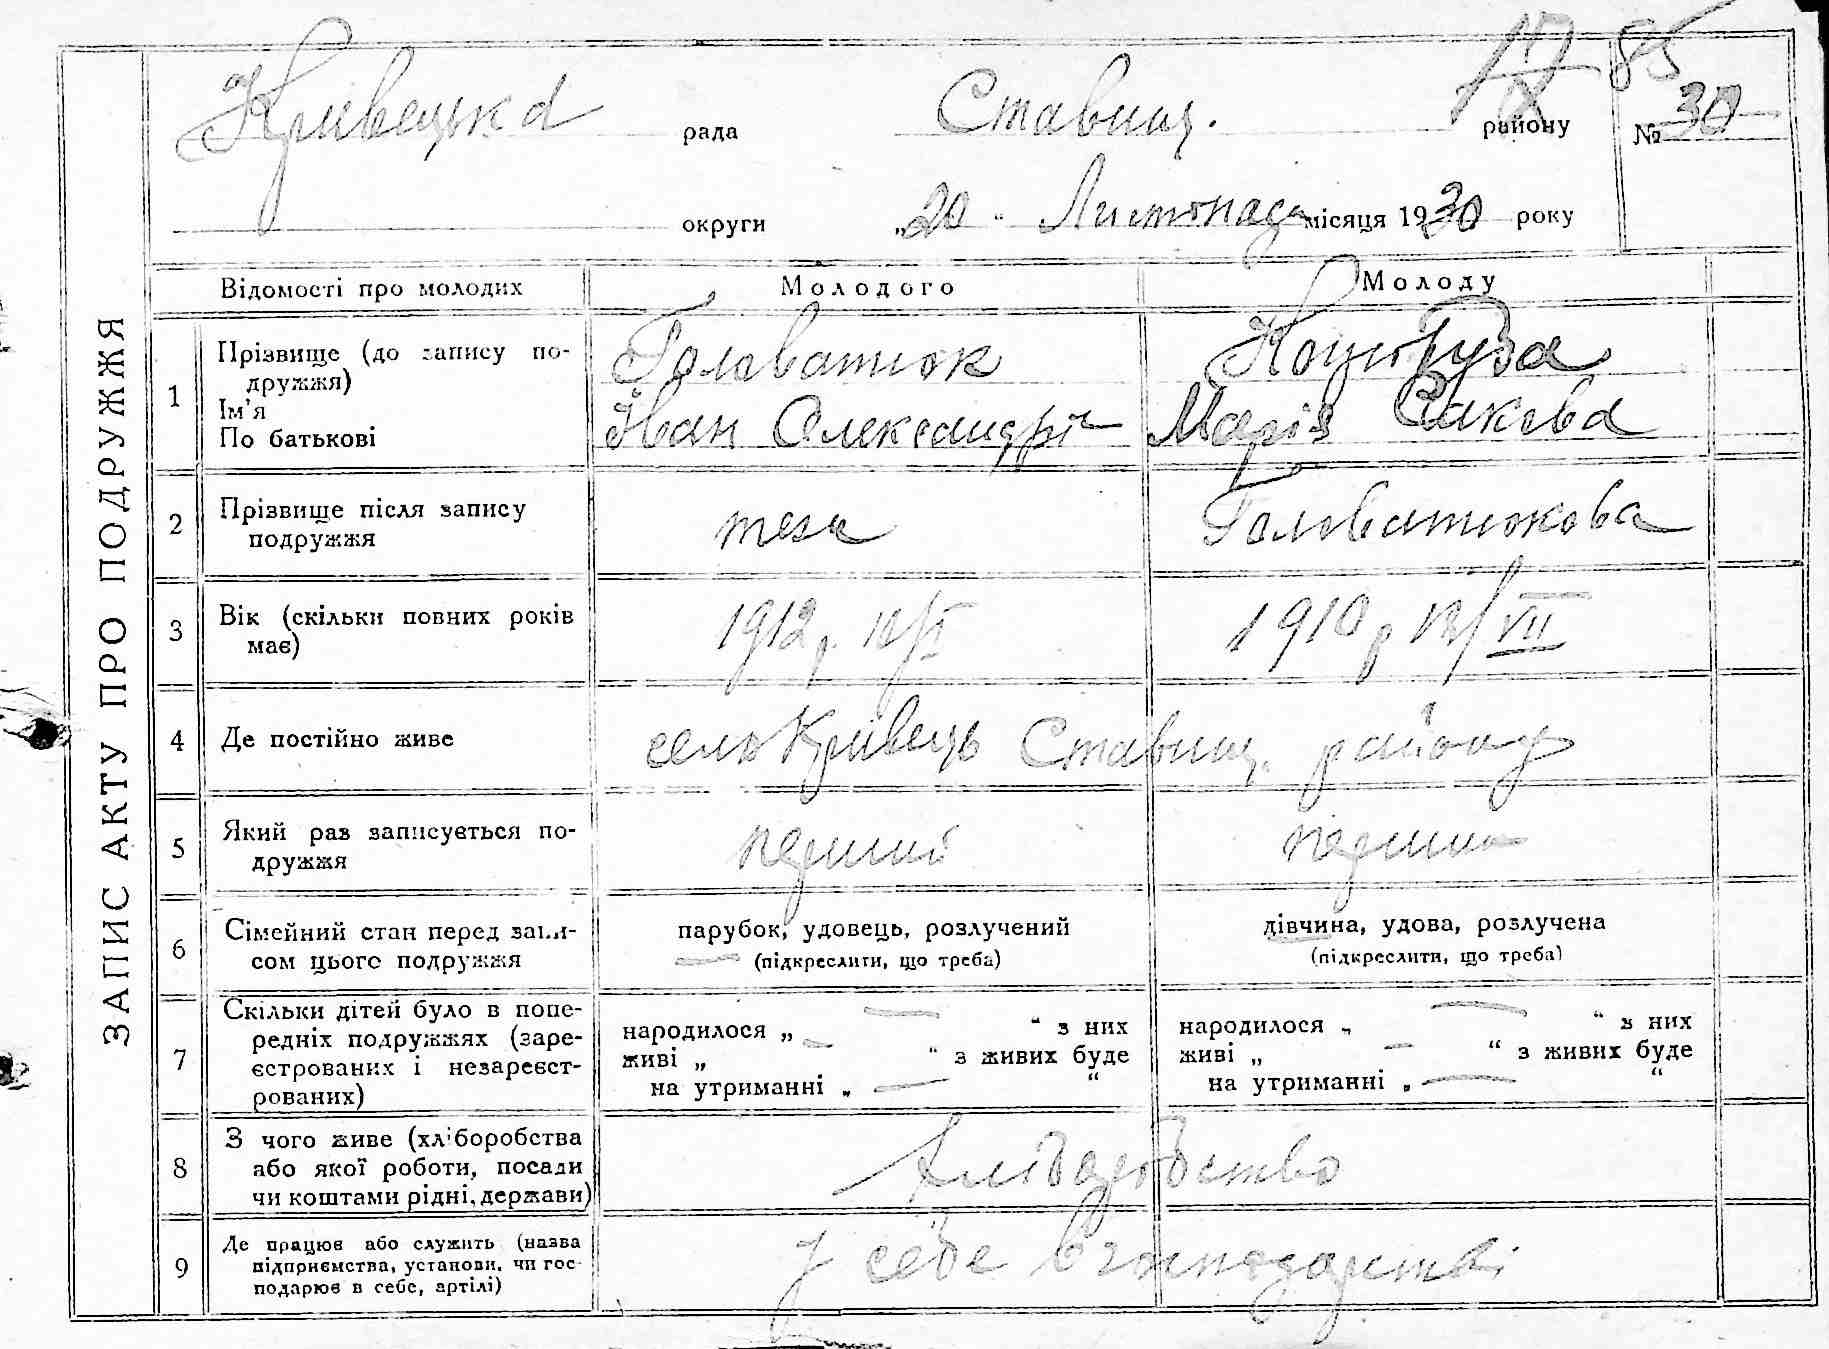 85
Кривецька рада Ставищ. району № 30
округи „20“ Листопада місяця 1930 року
ЗАПИС АКТУ ПРО ПОДРУЖЖЯ
Відомості про молодих Молодого Молоду
1 Прізвище (до запису по-
дружжя)
Ім'я
По батькові
Головатюк
Іван Олександрів
Марія Яківва
2 Прізвище після запису
подружжя
теж Головатюкова
3 Вік (скільки повних років
має)
1912 р. 12/I 1910 р 12/VII
4 Де постійно живе село Кривець Ставищ. району
5 Який раз записується по-
дружжя
перший перший
6 Сімейний стан перед запи-
сом цього подружжя
парубок, удовець, розлучений
(підкреслити, що треба)
дівчина, удова, розлучена
(підкреслити, що треба)
7 Скільки дітей було в попе-
редніх подружжях (заре-
єстрованих і незареєст-
рованих)
народилося „ — “ з них
живі „ — “ з живих буде
на утриманні „ — “
народилося „ — “ з них
живі „ — “ з живих буде
на утриманні „ — “
8 З чого живе (хліборобства
або якої роботи, посади
чи коштами рідні, держави)
Хліборобство
9 Де працює або служить (назва
підприємства, установи, чи гос-
подарює в себе, артілі)
У себе в господарстві